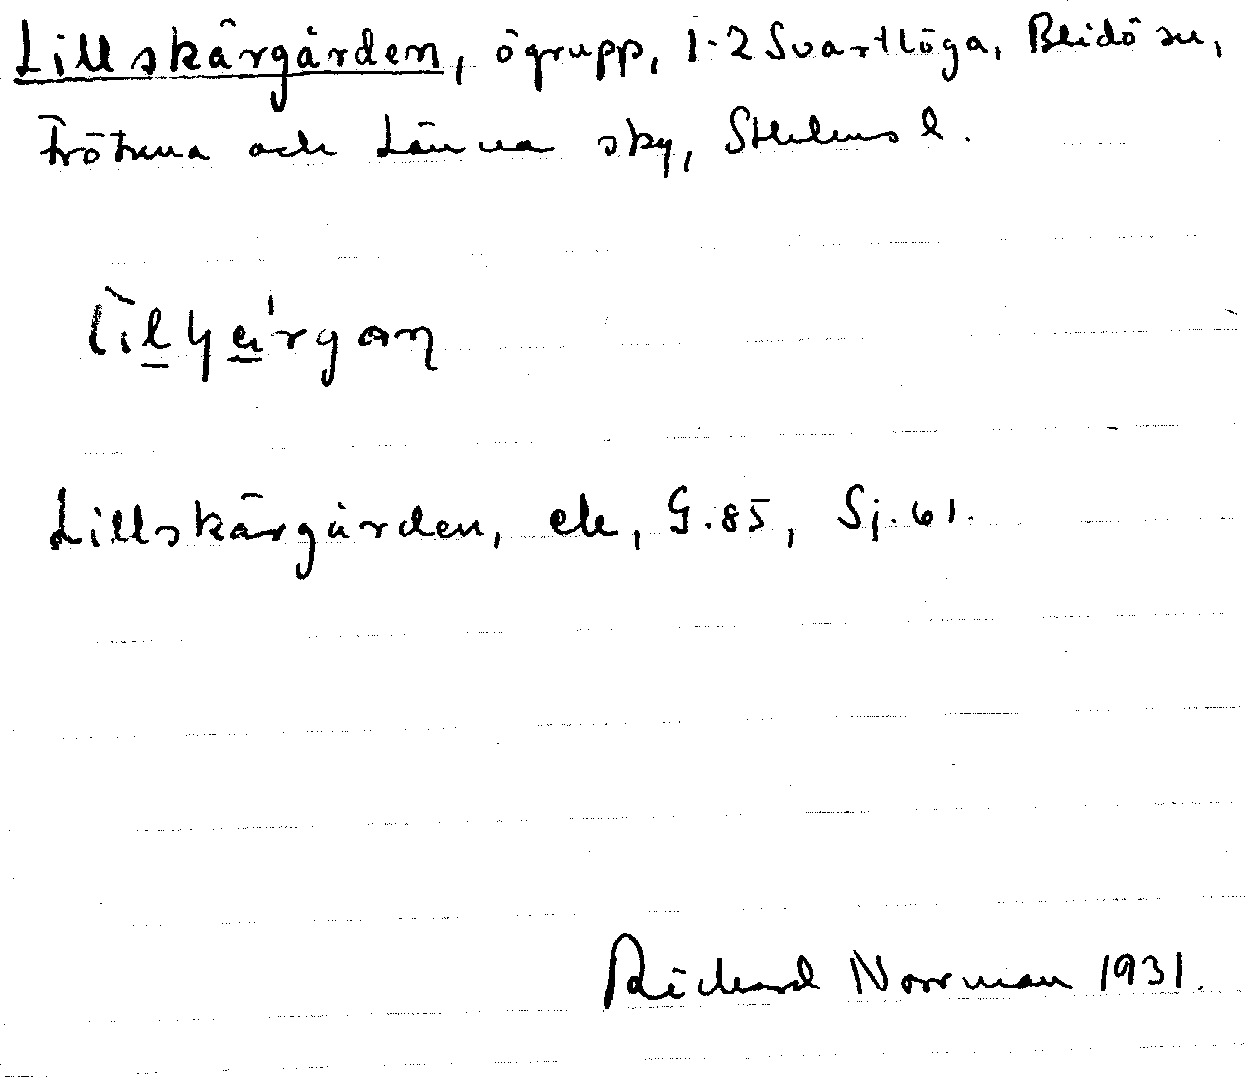 Lillskärgården, ögrupp, 1-2 Svartlöga, Blidö sn,
Frötuna och Länna sky, Sthlms l.
Lillskärgården, ek, G.85, Sj.61.
Richard Norrman 1931.